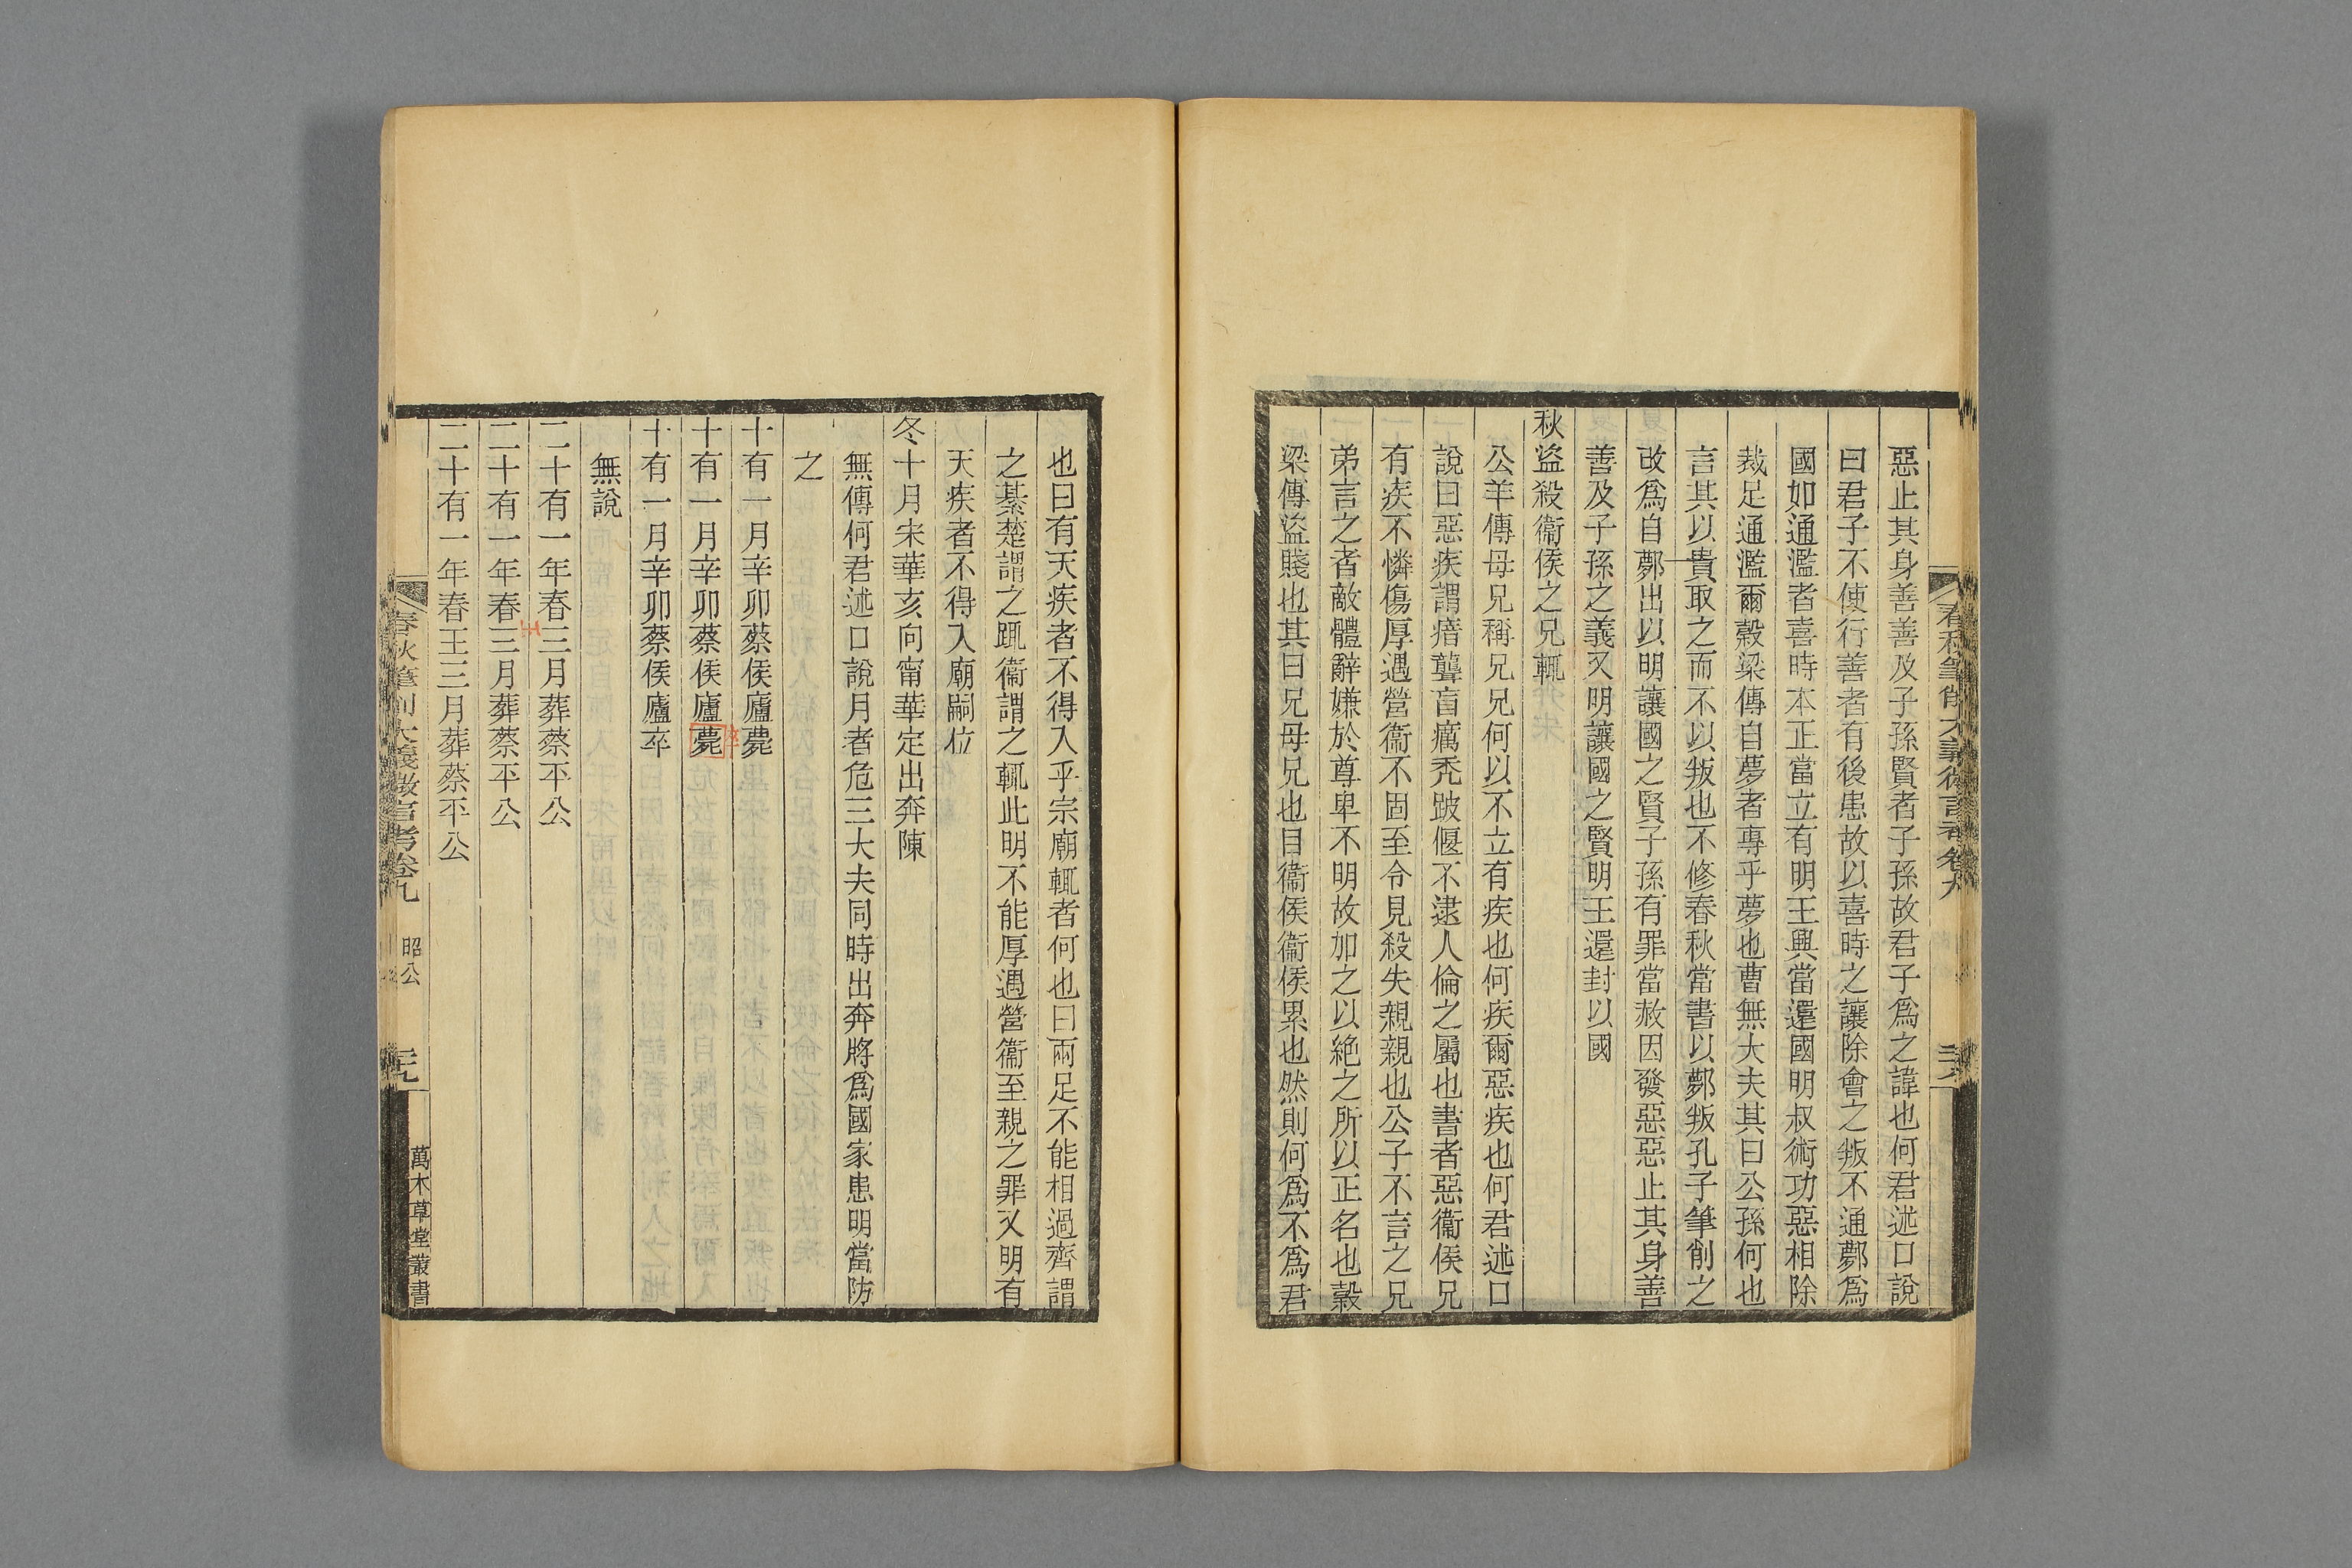 惡止其身善善及子孫賢者子孫故君子爲之諱也何君述口說
曰君子不使行善者有後患故以喜時之讓除會之叛不通鄸爲
國如通濫者喜時本正當立有明王興當還國明叔術功惡相除
裁足通濫爾穀梁傳自夢者專乎夢也曹無大夫其曰公孫何也
言其以貴取之而不以叛也不修春秋當書以鄸叛孔子筆削之
改爲自鄸出以明讓國之賢子孫有罪當赦因發惡惡止其身善
善及子孫之義又明讓國之賢明王還封以國
秋盜殺衞侯之兄輒
公羊傳母兄稱兄兄何以不立有疾也何疾爾惡疾也何君述口
說曰惡疾謂瘖聾盲癘禿跛傴不逮人倫之屬也書者惡衞侯兄
有疾不憐傷厚遇營衞不固至令見殺失親親也公子不言之兄
弟言之者敵體辭嫌於尊卑不明故加之以絕之所以正名也穀
梁傳盜賤也其曰兄母兄也目衞侯衞侯累也然則何爲不爲君
春秋筆削大義微言考卷九
也曰有天疾者不得入乎宗廟輒者何也曰兩足不能相過齊謂
之綦楚謂之踂衞謂之輒此明不能厚遇營衞至親之罪又明有
天疾者不得入廟嗣位
冬十月宋華亥向甯華定出奔陳
無傳何君述口說月者危三大夫同時出奔將爲國家患明當防
之
十有一月辛卯蔡侯廬薨
十有一月辛卯蔡侯廬薨
卒
十有一月辛卯蔡侯廬卒
無說
二十有一年春三月葬蔡平公
二十有一年春三月葬蔡平公
二十有一年春王三月葬蔡平公
春秋筆削大義微言考卷九 昭公 三九 萬木草堂叢書